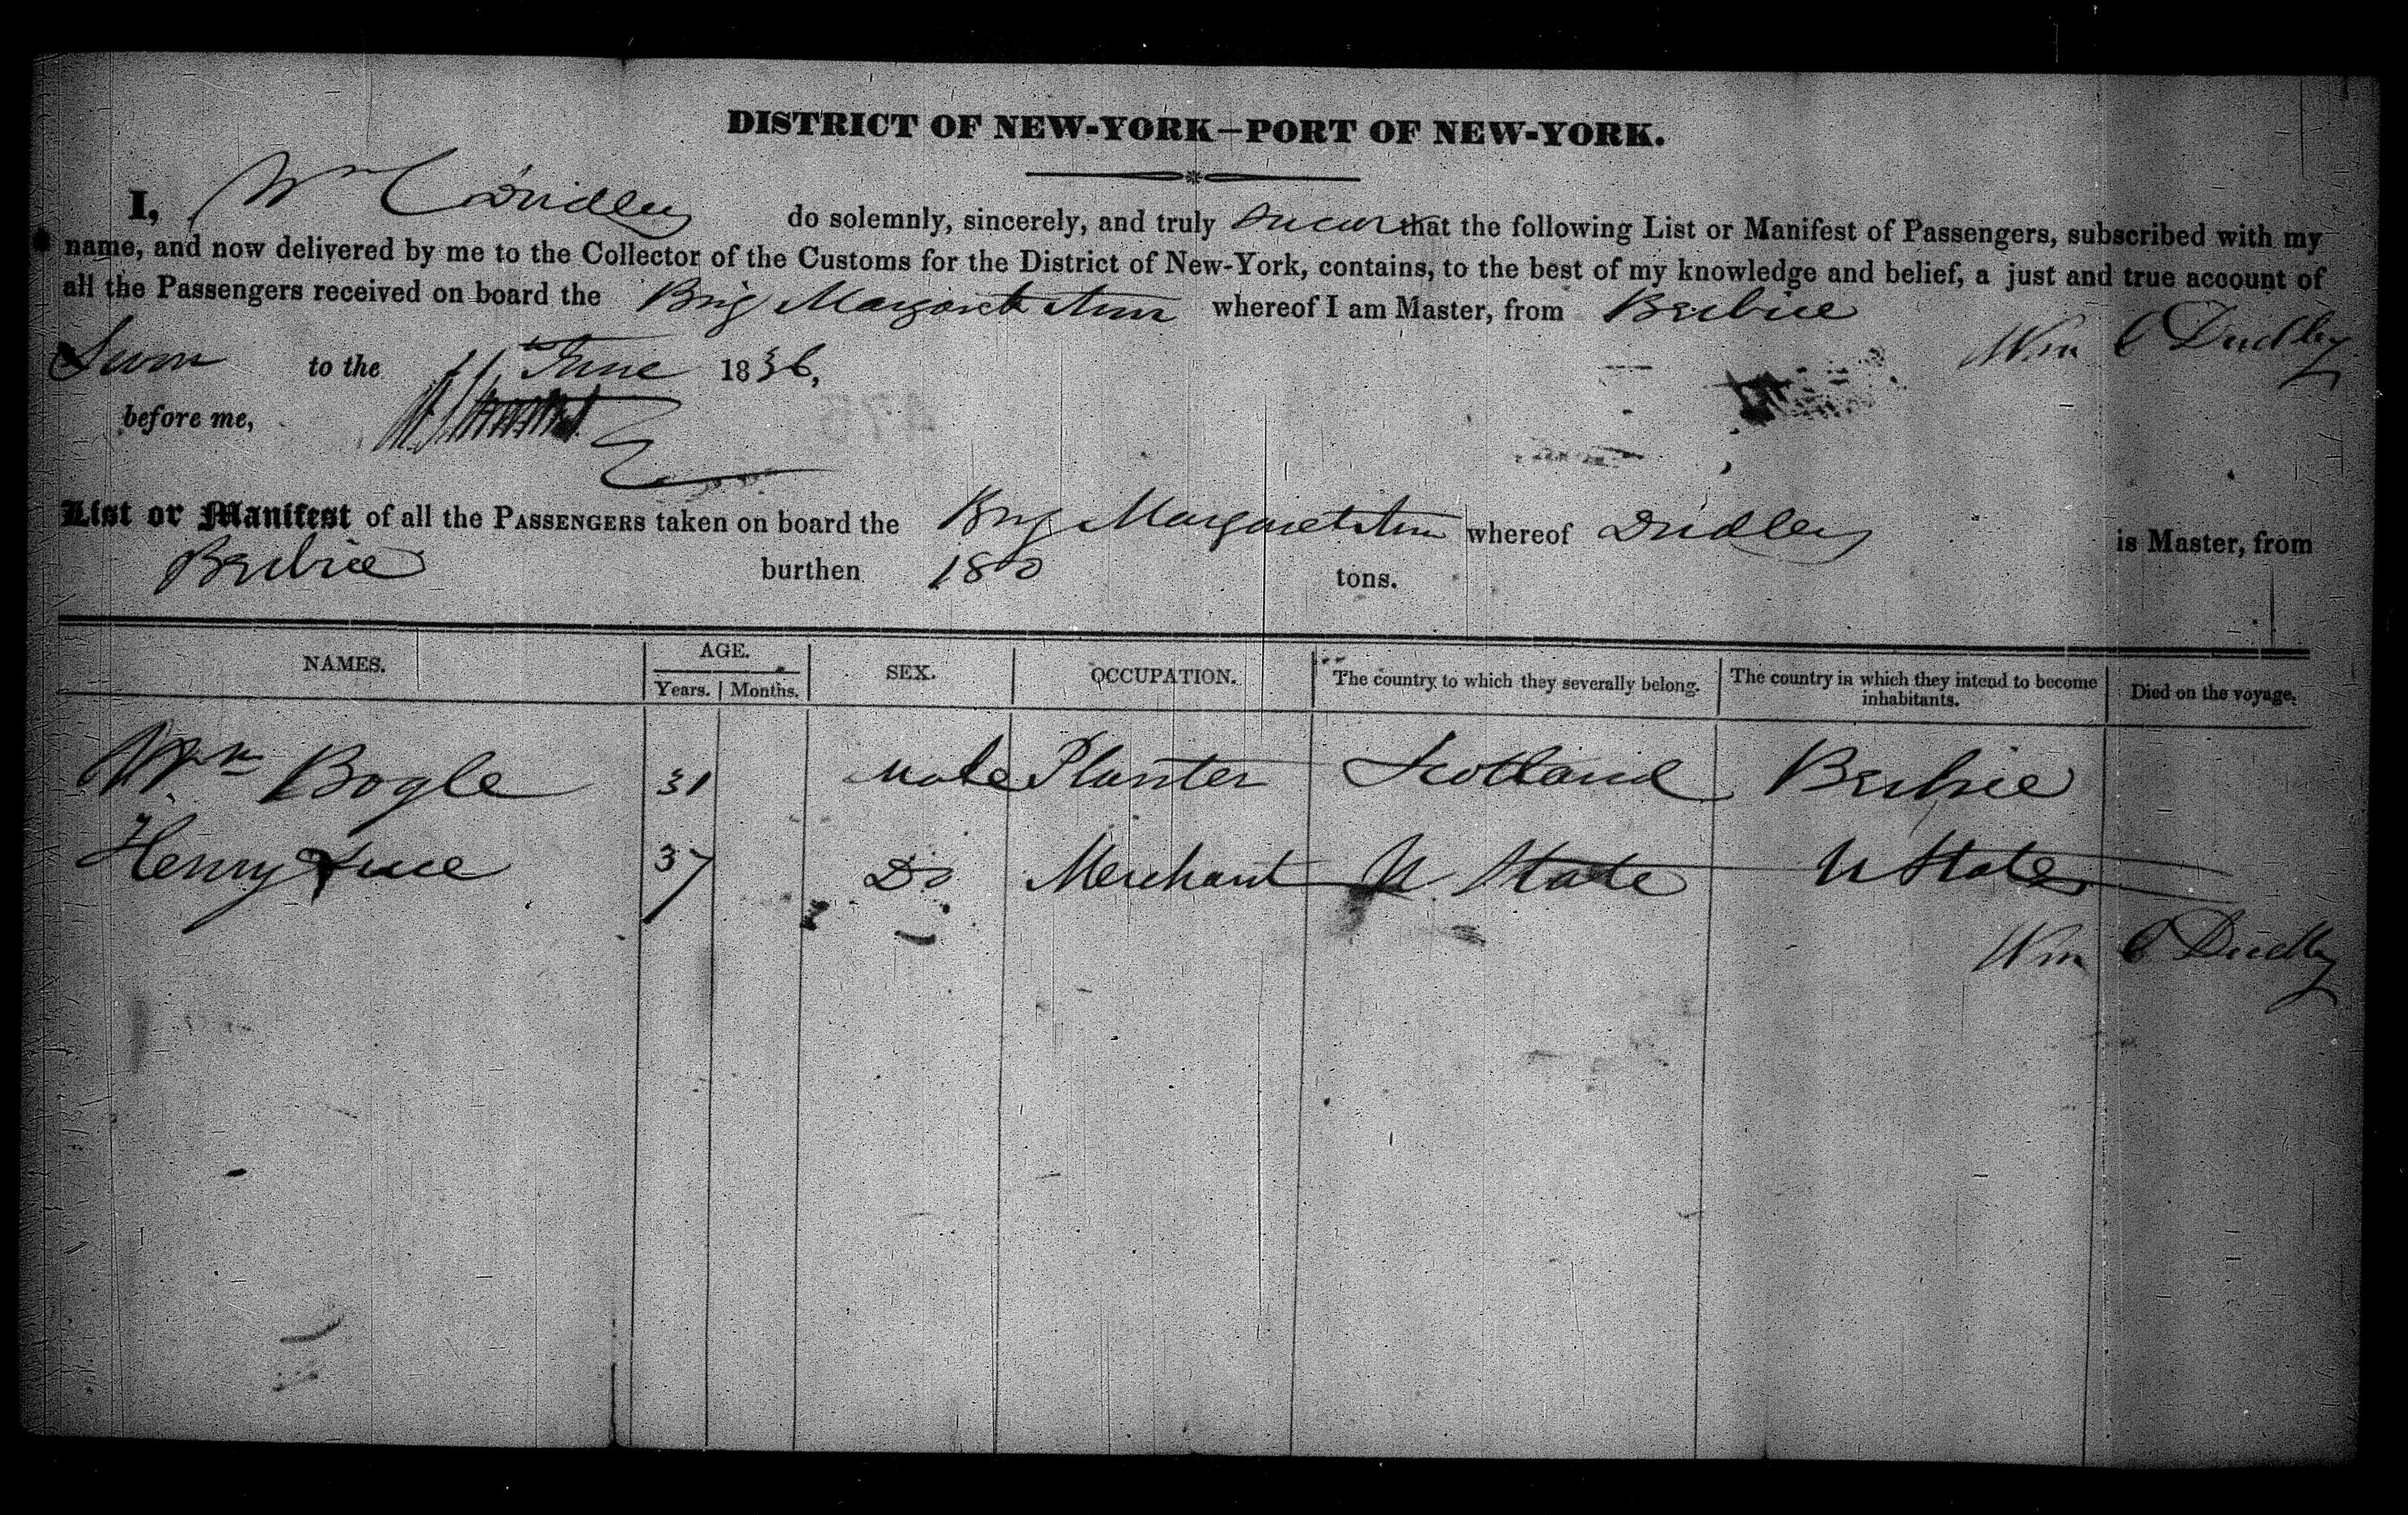 DISTRICT OF NEW-YORK—PORT OF NEW-YORK.
I, Wm C Dudley do solemnly, sincerely, and truly swear that the following List or Manifest of Passengers, subscribed with my
name, and now delivered by me to the Collector of the Customs for the District of New-York, contains, to the best of my knowledge and belief, a just and true account of
all the Passengers received on board the Brig Margaret Ann whereof I am Master, from Berbice
Sworn to the 11th June 1836, Wm C Dudley
before me,
List or Manifest of all the PASSENGERS taken on board the Brig Margaret Ann whereof Dudley is Master, from
Berbice burthen 180 tons.
NAMES. AGE. Years. Months. SEX. OCCUPATION. The country to which they severally belong. The country in which they intend to become inhabitants. Died on the voyage.
Wm Bogle 31 Male Planter Scotland Berbice
Henry Luce 37 Do Merchant U State U States
Wm C Dudley